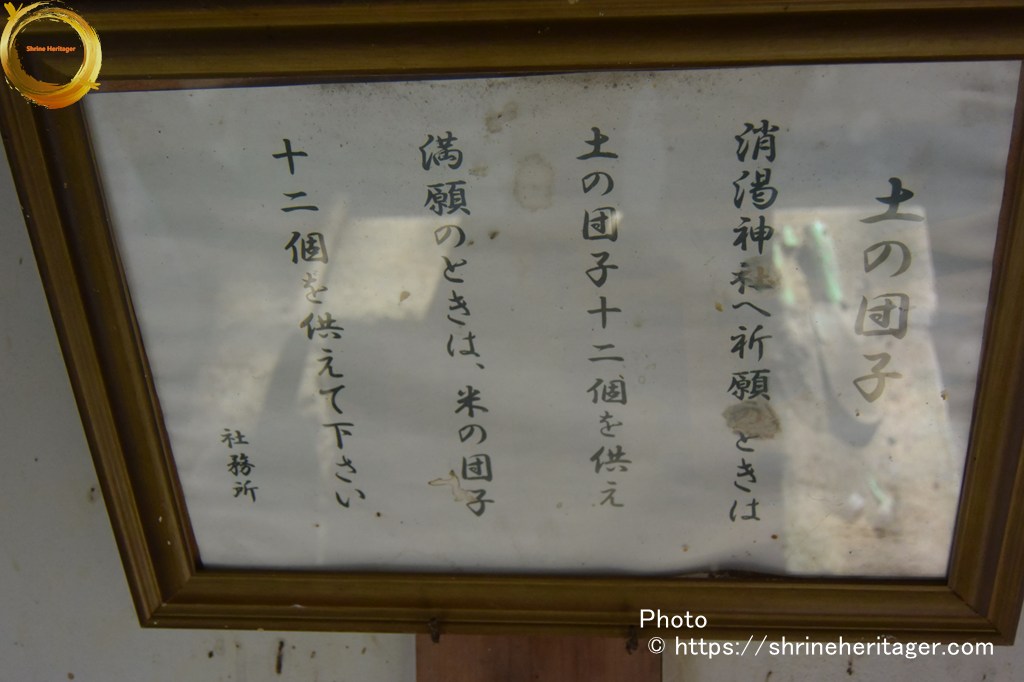 土の団子
消渇神社へ祈願のときは
土の団子十二個を供え
満願のときは、米の団子
十二個を供えて下さい
社務所
Shrine Heritager
Photo
© https://shrineheritager.com